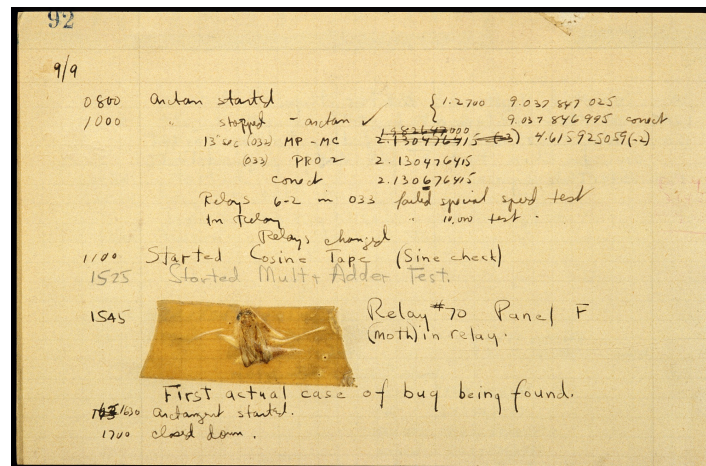 92
9/9
0800 arctan started { 1.2700 9.037 847 025
1000 " stopped - arctan ✓ 9.037 846 995 conect
13"uc (032) MP - MC 1.982647000 2.130476415 (-3) 4.615925059(-2)
(033) PRO 2 2.130476415
conect 2.130676415
Relays 6-2 in 033 failed special speed test
In Relay " 10,000 test .
Relays changed
1100 Started Cosine Tape (Sine check)
1525 Started Mult + Adder Test.
1545 Relay #70 Panel F
(Moth) in relay.
First actual case of bug being found.
1630 arctangent started.
1700 closed down .